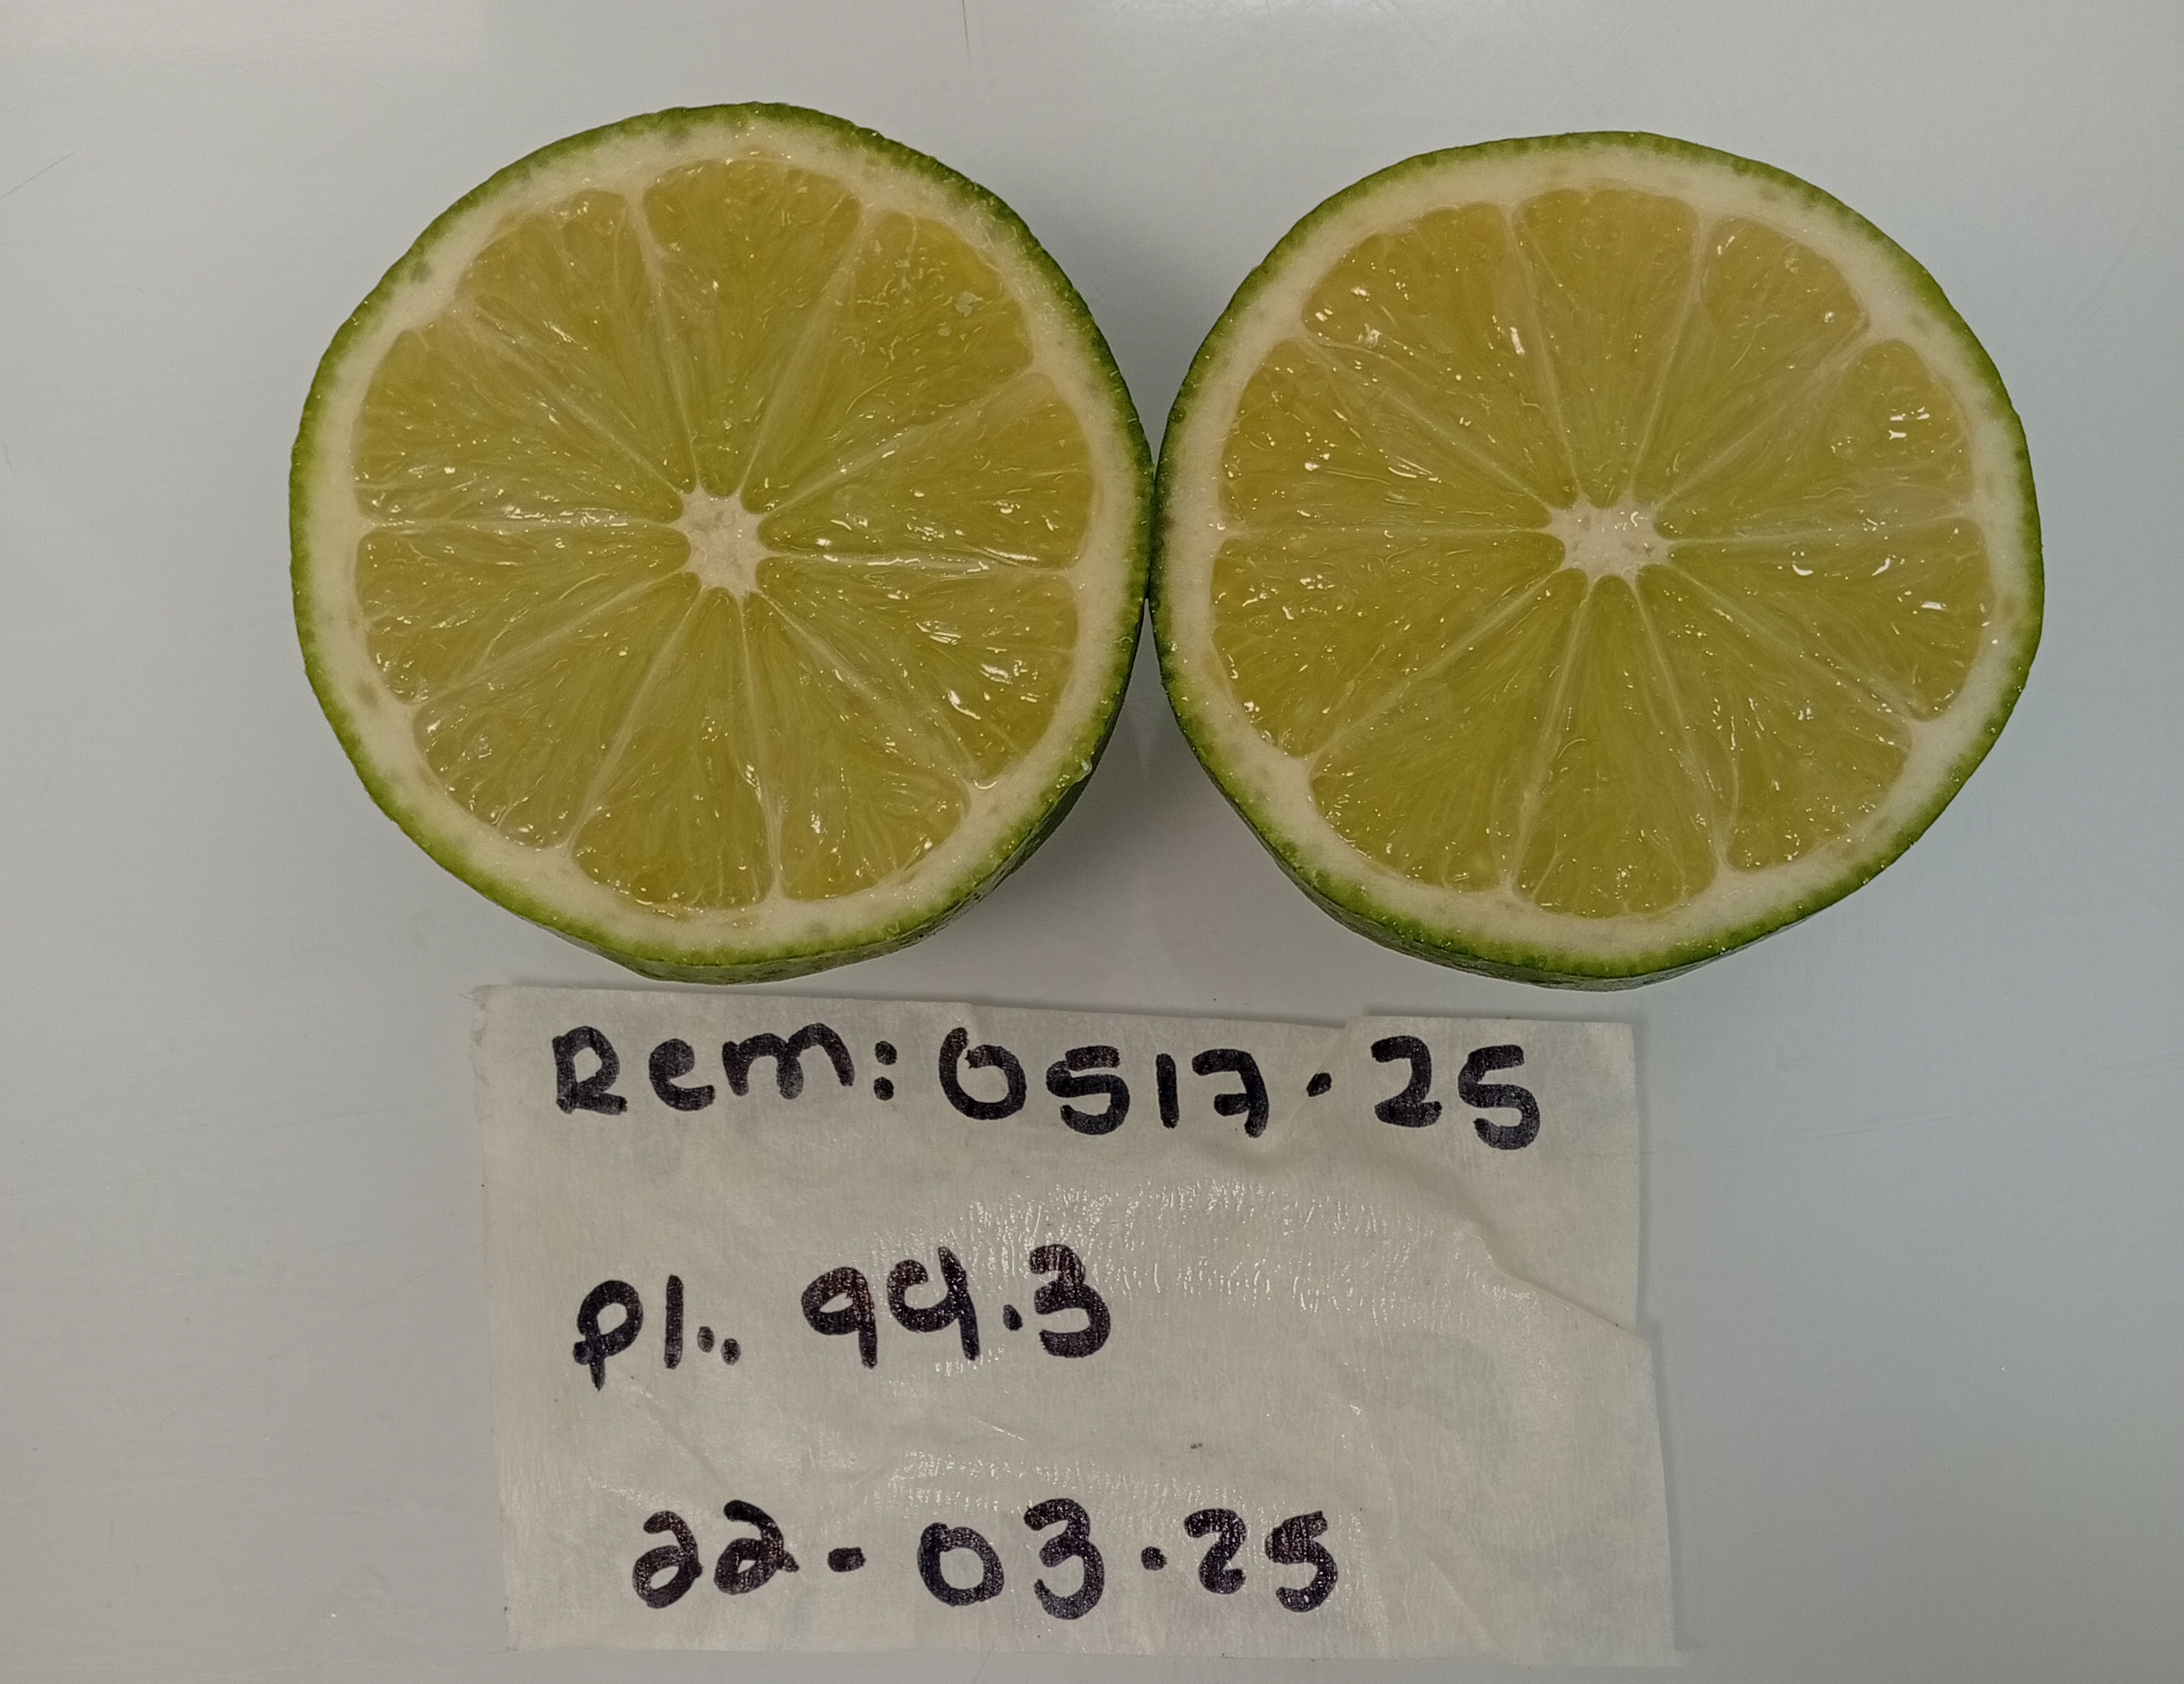 Rem: 0517.25
Pl.. 99.3
22-03.25